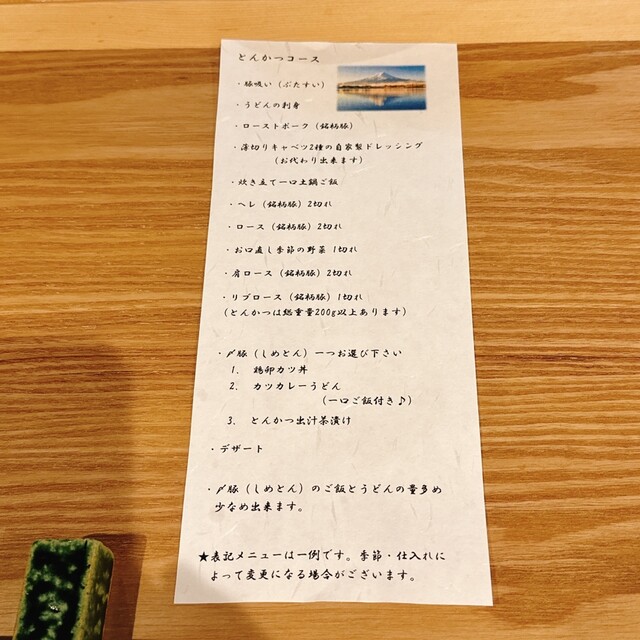 とんかつコース
・豚吸い（ぶたすい）
・うどんの刺身
・ローストポーク（銘柄豚）
・薄切りキャベツ2種の自家製ドレッシング
（お代わり出来ます）
・炊き立て一口土鍋ご飯
・ヘレ（銘柄豚）2切れ
・ロース（銘柄豚）2切れ
・お口直し季節の野菜 1切れ
・肩ロース（銘柄豚）2切れ
・リブロース（銘柄豚）1切れ
（とんかつは総重量200g以上あります）
・〆豚（しめとん）一つお選び下さい
1. 鶏卵カツ丼
2. カツカレーうどん
（一口ご飯付き♪）
3. とんかつ出汁茶漬け
・デザート
・〆豚（しめとん）のご飯とうどんの量多め
少なめ出来ます。
★表記メニューは一例です。季節・仕入れに
よって変更になる場合がございます。